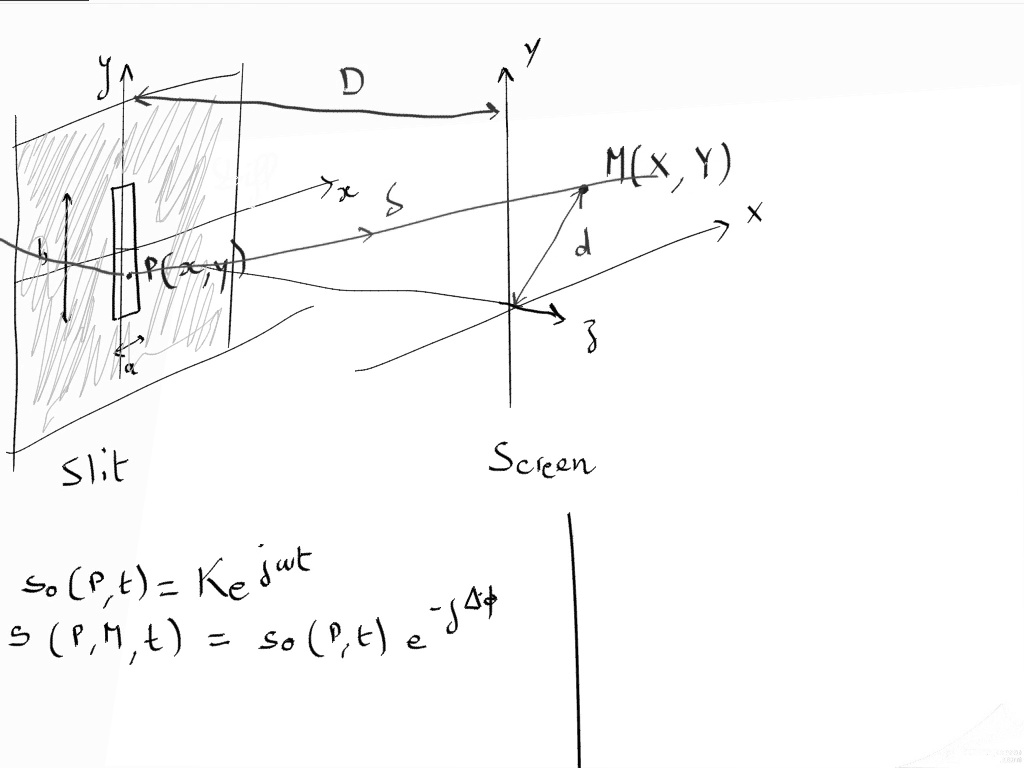 y
Y
D
M(X, Y)
x
S
X
b
P(x, y)
d
z
a
Slit
Screen
so(P,t) = Ke^jωt
s(P,M,t) = so(P,t) e^-jΔφ